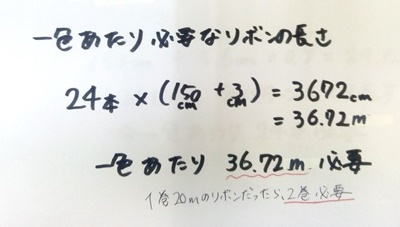 一色あたり必要なリボンの長さ
24本 × (150cm + 3cm) = 3672cm
= 36.72m
一色あたり 36.72m 必要
1巻20mのリボンだったら、2巻必要